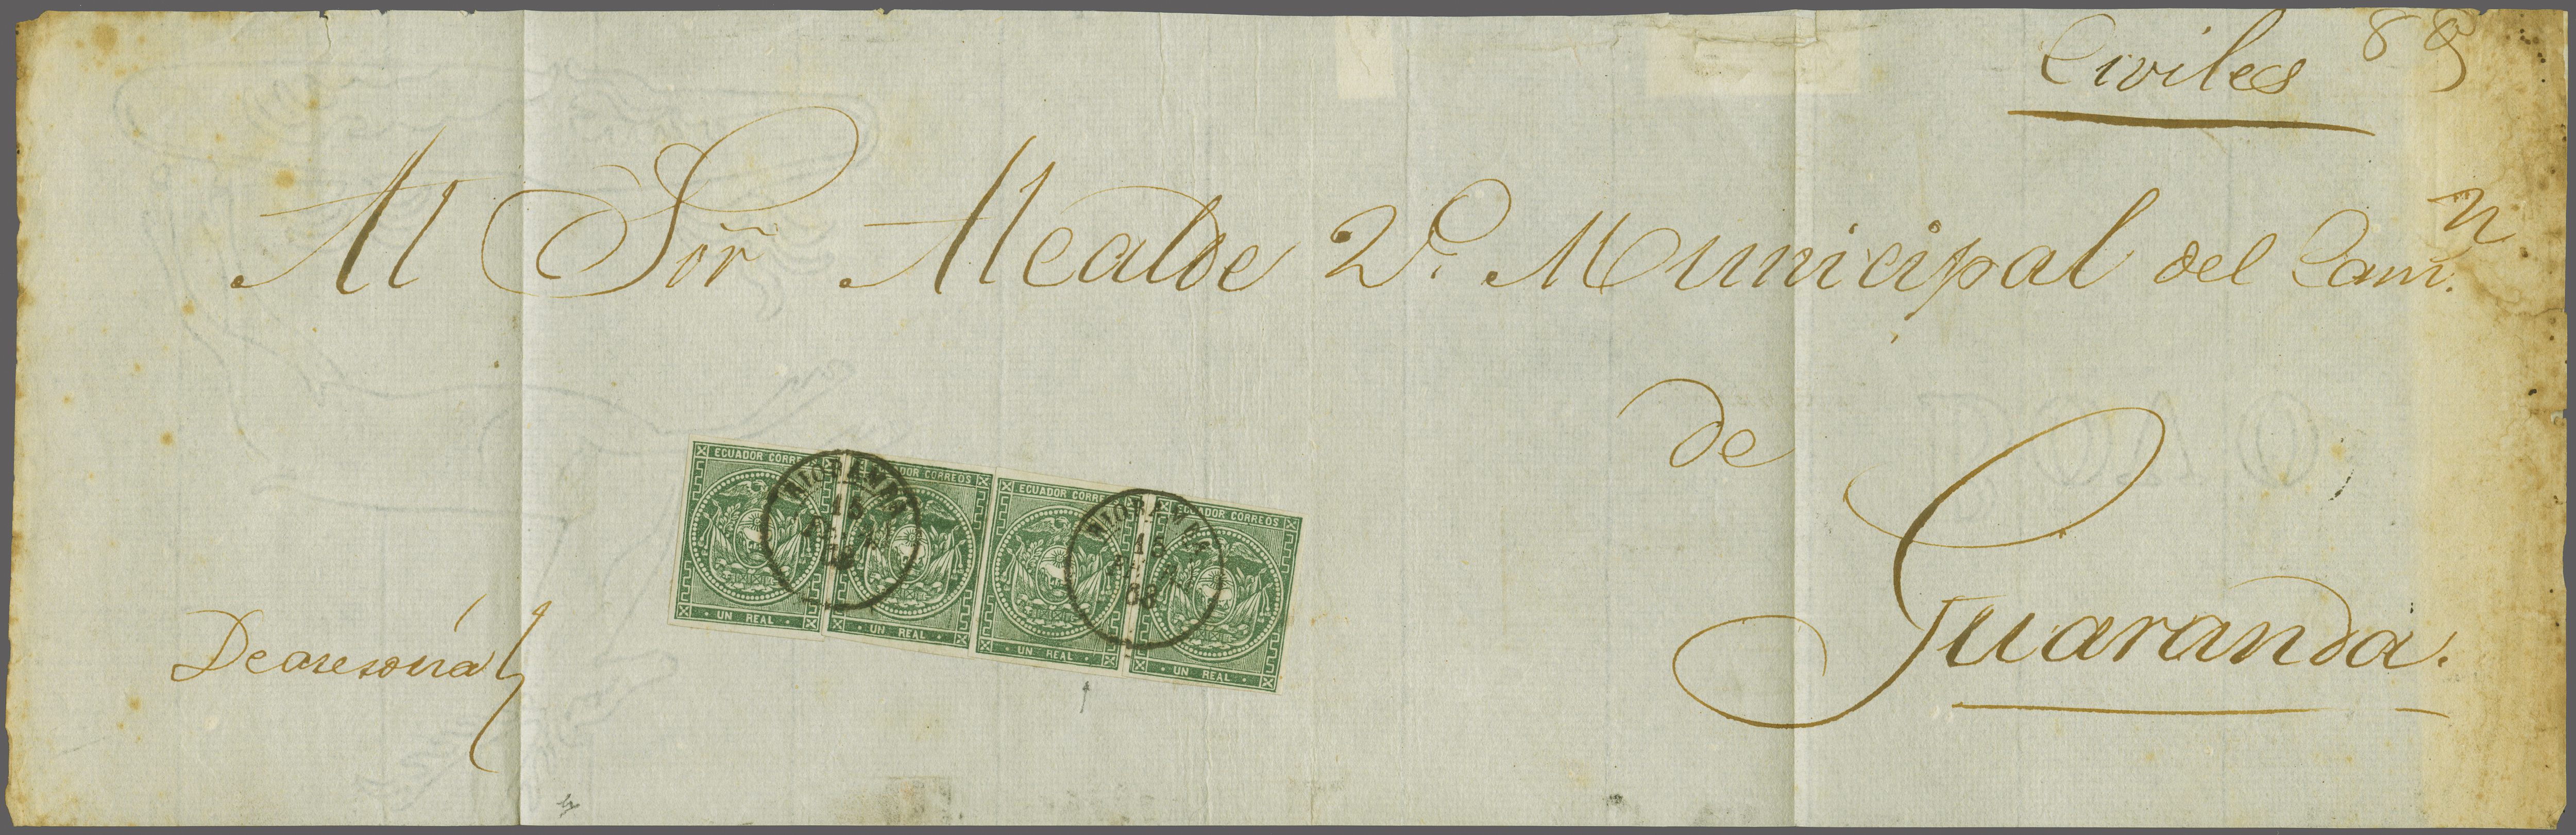 Civiles 8 8
Al Sor Alcalde 2º. Municipal del Cam.n
de
Guaranda.
ECUADOR CORREOS
UN REAL
ECUADOR CORREOS
UN REAL
ECUADOR CORREOS
UN REAL
ECUADOR CORREOS
UN REAL
RIOBAMBA
15
RIOBAMBA
15
68